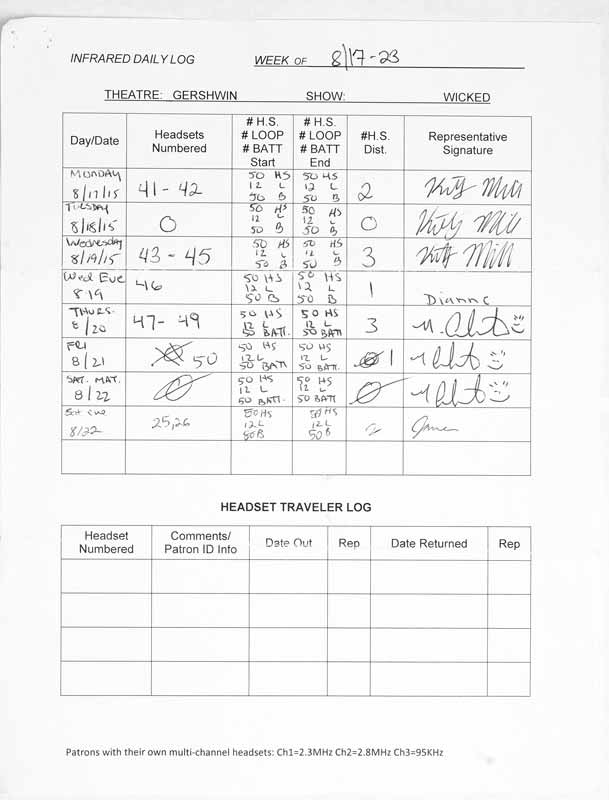 INFRARED DAILY LOG WEEK OF 8/17-23
THEATRE: GERSHWIN SHOW: WICKED
Day/Date Headsets Numbered # H.S. # LOOP # BATT Start # H.S. # LOOP # BATT End #H.S. Dist. Representative Signature
MONDAY 8/17/15 41 - 42 50 HS 12 L 50 B 50 HS 12 L 50 B 2
TUESDAY 8/18/15 0 50 HS 12 L 50 B 50 HS 12 L 50 B 0
Wednesday 8/19/15 43 - 45 50 HS 12 L 50 B 50 HS 12 L 50 B 3
Wed Eve 8/19 46 50 HS 12 L 50 B 50 HS 12 L 50 B 1 Dianne
THURS. 8/20 47 - 49 50 HS 12 L 50 BATT. 50 HS 12 L 50 BATT. 3
FRI 8/21 50 50 HS 12 L 50 BATT 50 HS 12 L 50 BATT 1
SAT. MAT. 8/22 0 50 HS 12 L 50 BATT. 50 HS 12 L 50 BATT. 0
Sat eve 8/22 25,26 50HS 12L 50B 50HS 12L 50B 2
HEADSET TRAVELER LOG
Headset Numbered Comments/ Patron ID Info Date Out Rep Date Returned Rep
Patrons with their own multi-channel headsets: Ch1=2.3MHz Ch2=2.8MHz Ch3=95KHz